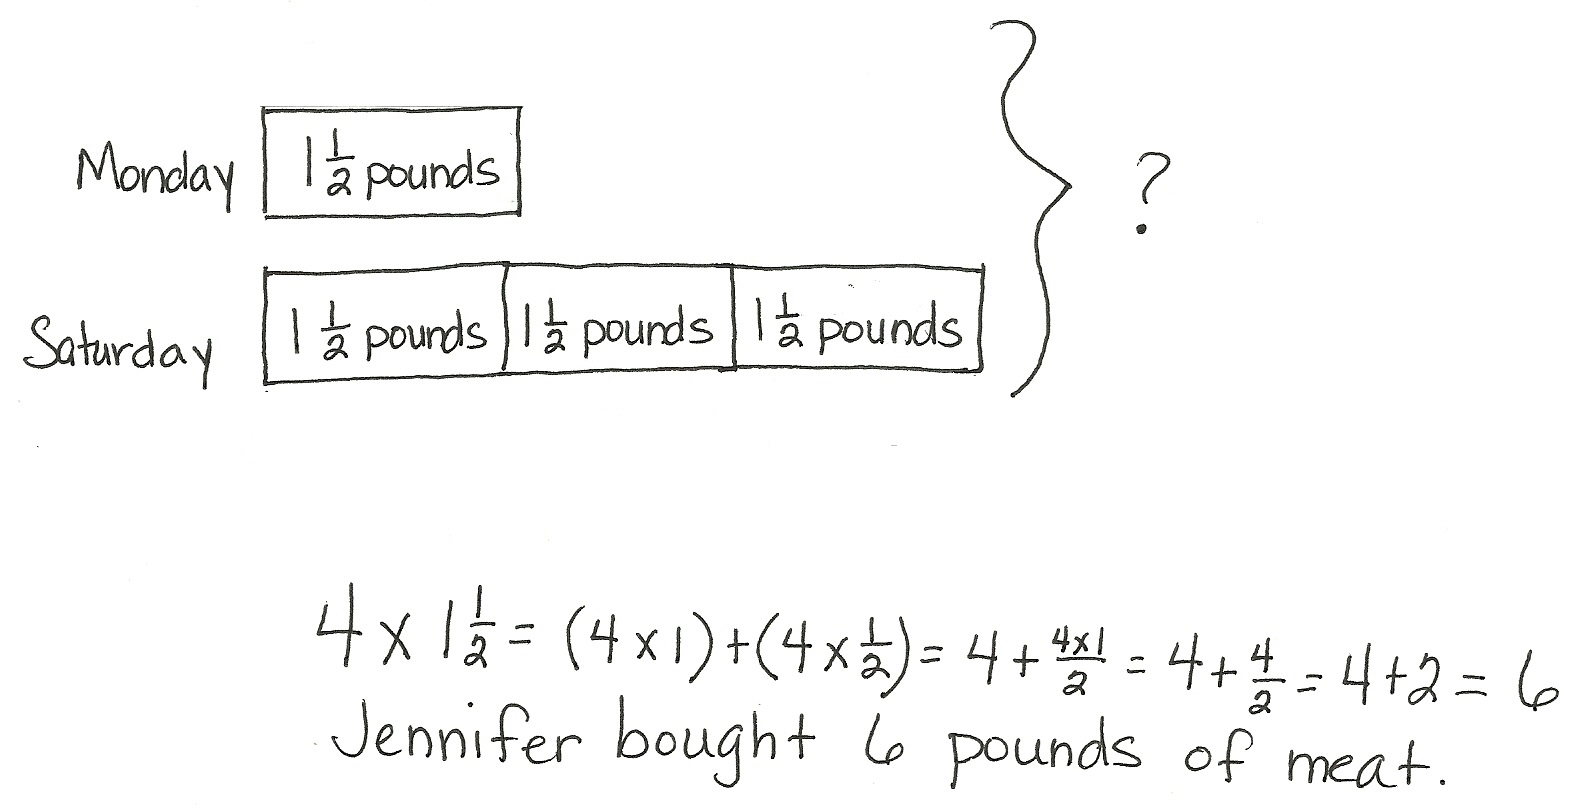 Monday 1 1/2 pounds
?
Saturday 1 1/2 pounds 1 1/2 pounds 1 1/2 pounds
4 x 1 1/2 = (4 x 1) + (4 x 1/2) = 4 + 4x1/2 = 4 + 4/2 = 4 + 2 = 6
Jennifer bought 6 pounds of meat.